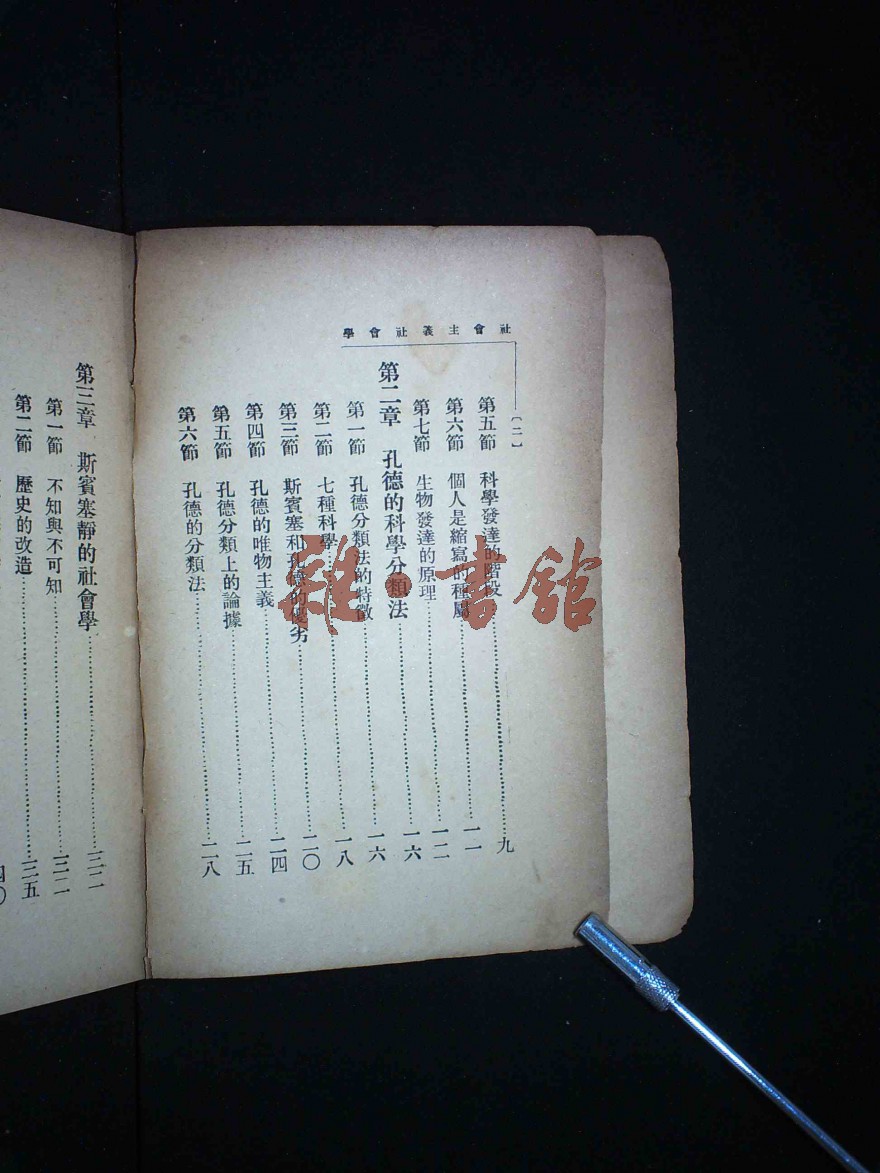 社會主義社會學
〔二〕
第五節 科學發達的階段 九
第六節 個人是縮寫的種屬 一一
第七節 生物發達的原理 一二
第二章 孔德的科學分類法 一六
第一節 孔德分類法的特徵 一六
第二節 七種科學 一八
第三節 斯賓塞和孔德的優劣 二〇
第四節 孔德的唯物主義 二四
第五節 孔德分類上的論據 二五
第六節 孔德的分類法 二八
第三章 斯賓塞靜的社會學 三二
第一節 不知與不可知 三二
第二節 歷史的改造 三五
四〇
雜·書館